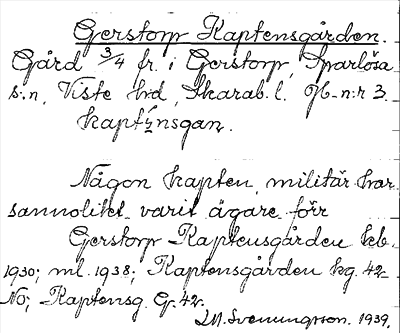 Gerstorp Kaptensgården.
Gård 3/4 fr. i Gerstorp, Sparlösa
s:n, Viste hd, Skarab. l. Jb-n:r 3.
Någon kapten, militär har
sannolikt varit ägare förr
Gerstorp Kaptensgården keb.
1930; ml. 1938; Kaptensgården kg. 42
No; Kaptensg. Gr. 42.
Svenungsson. 1939.